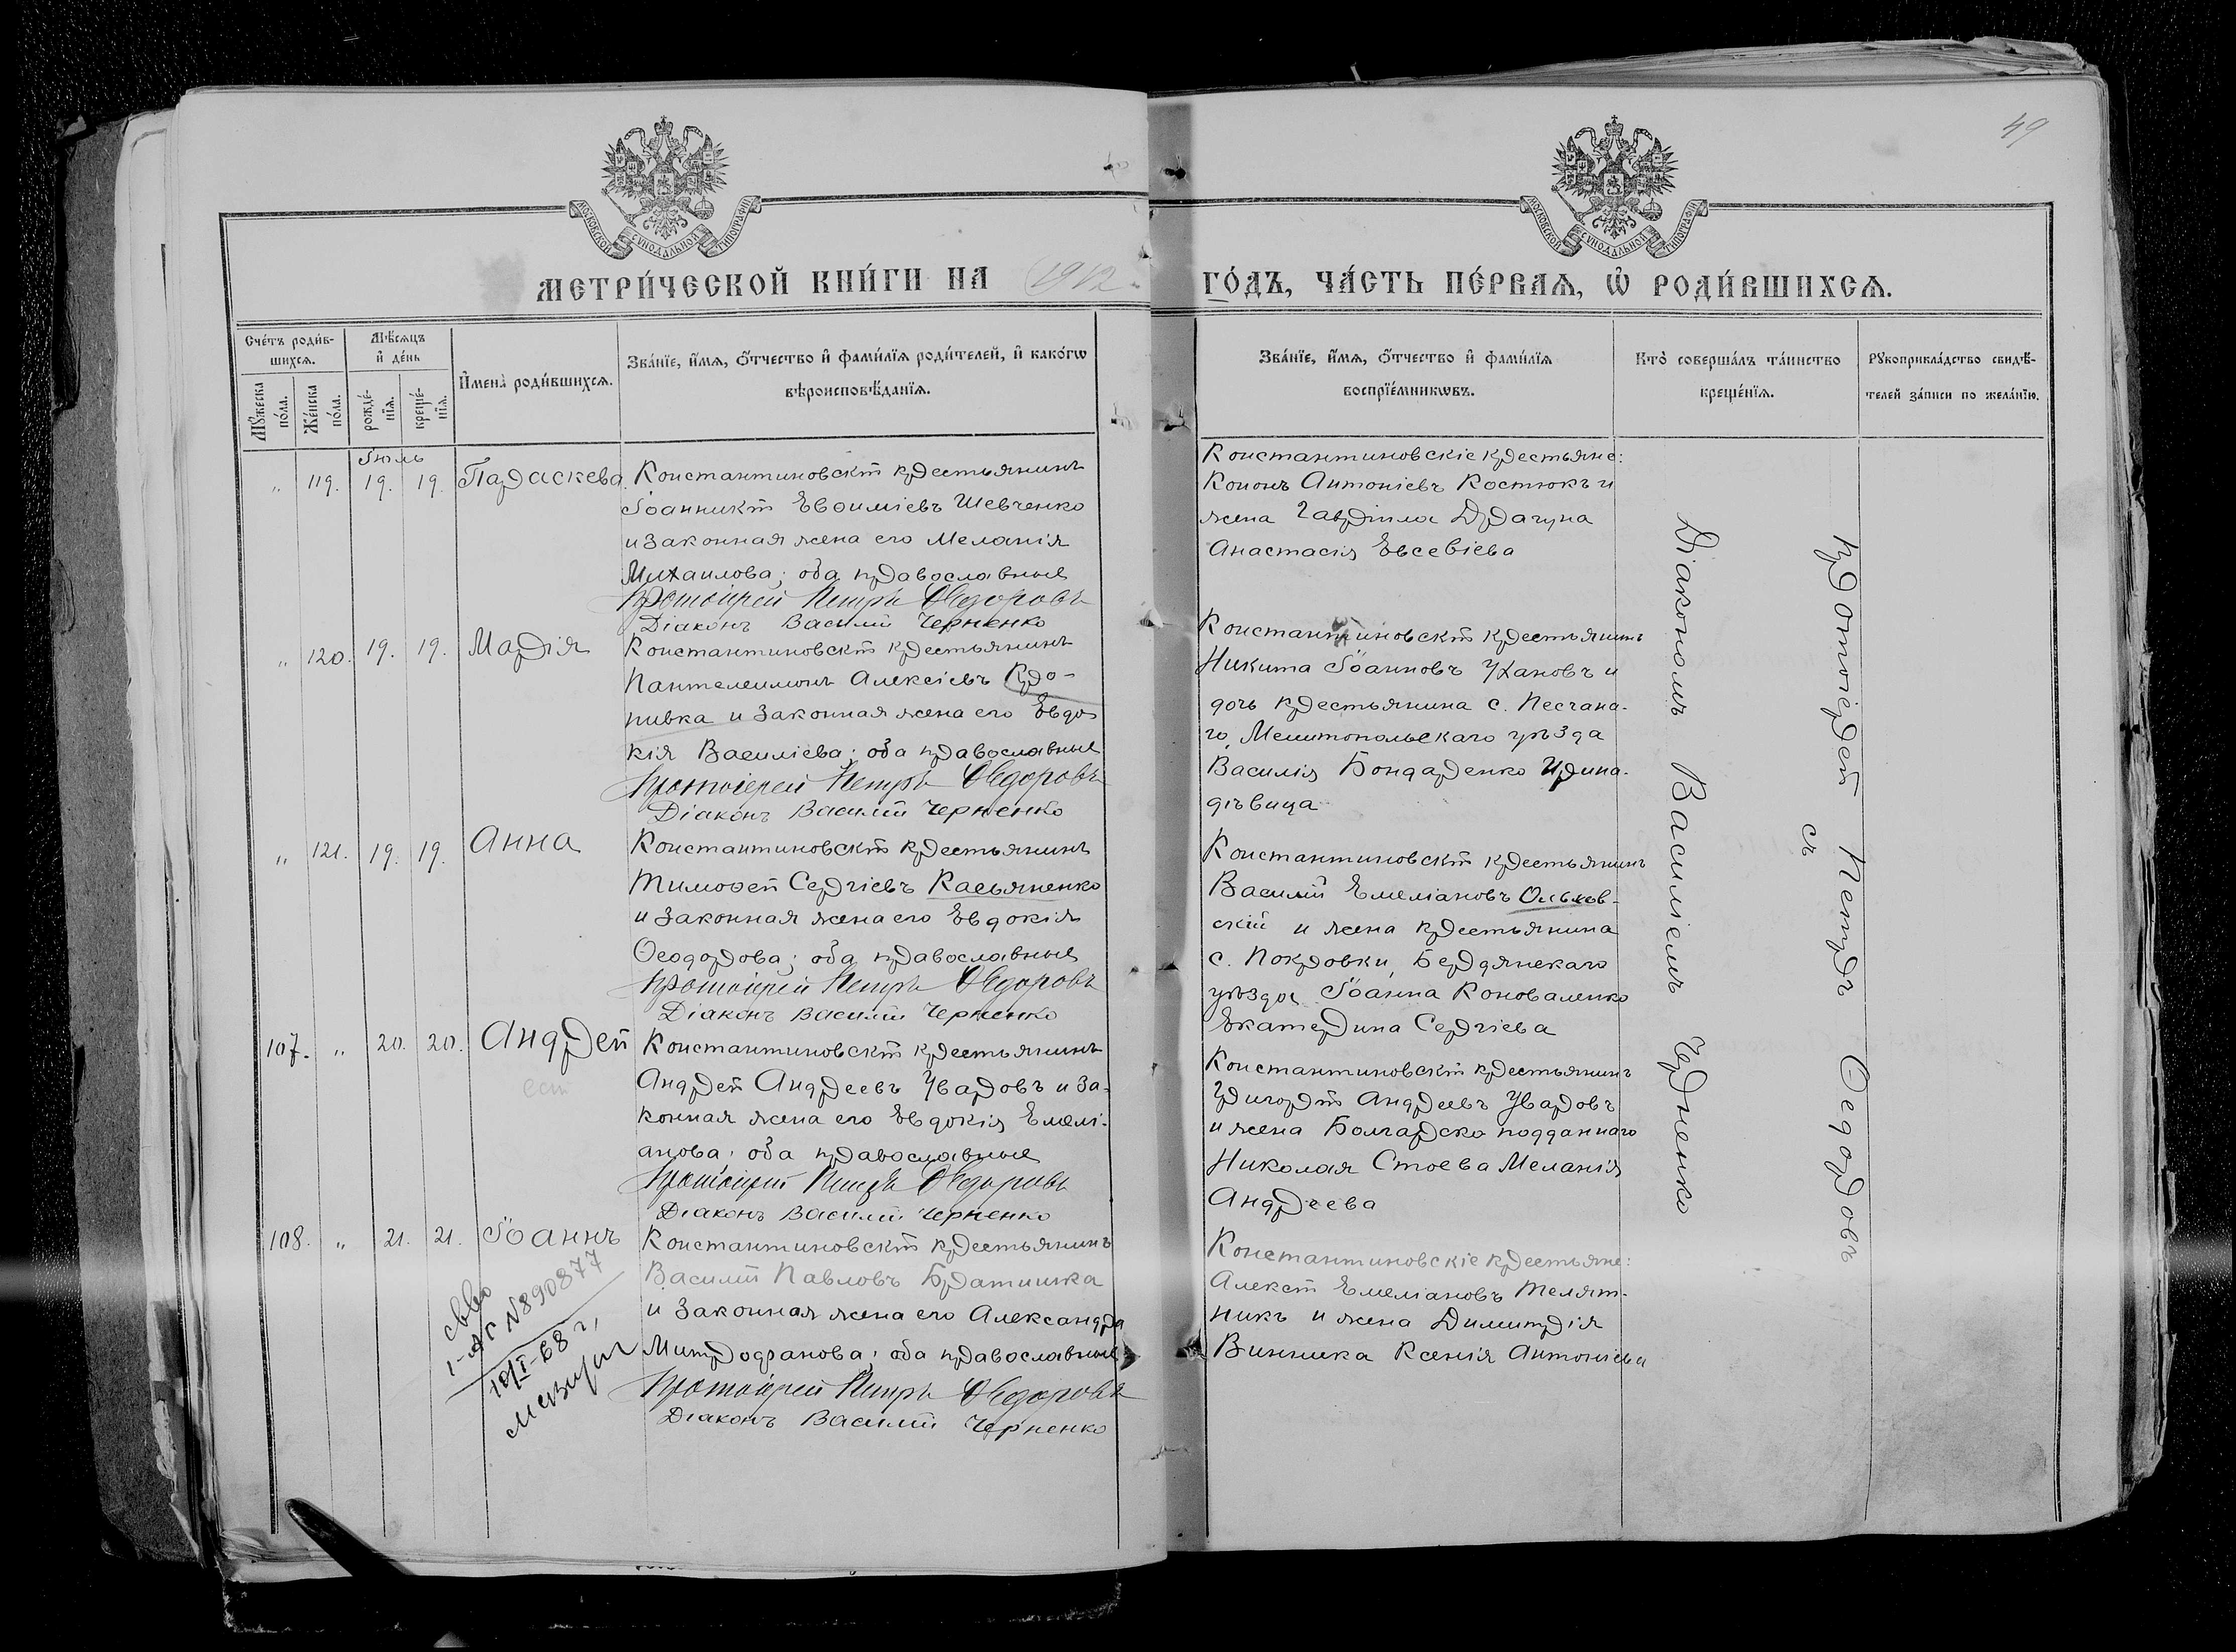 49
МОСКОВСКОЙ СѴНОДАЛЬНОЙ ТИПОГРАФІИ
МОСКОВСКОЙ СѴНОДАЛЬНОЙ ТИПОГРАФІИ
МЕТРИ́ЧЕСКОЙ КНИ́ГИ НА 1912
ГО́ДЪ, ЧА́СТЬ ПЕ́РВАѦ, Ѽ РОДИ́ВШИХСѦ.
Сче́тъ роди́в-
шихсѧ.
Мꙋ́жеска по́ла.
Же́нска по́ла.
Мѣ́сѧцъ
и҆ де́нь
рожде́-
нїѧ.
креще́-
нїѧ.
И҆мена̀ роди́вшихсѧ.
Зва́нїе, и҆́мѧ, ѻ҆́тчество и҆ фами́лїѧ роди́телей, и҆ како́гѡ
вѣроисповѣ́данїѧ.
Зва́нїе, и҆́мѧ, ѻ҆́тчество и҆ фами́лїѧ
воспрїе́мникѡвъ.
Кто̀ соверша́лъ та́инство
креще́нїѧ.
Рꙋкоприкла́дство свидѣ́-
телей за́писи по жела́нїю.
Іюль
„ 119. 19. 19. Параскева
Константиновскій крестьянинъ
Іоанникій Евѳиміевъ Шевченко
и законная жена его Меланія
Михаилова; оба православные
Протоіерей Петръ Ѳедоровъ
Діаконъ Василій Черненко
Константиновскіе крестьяне:
Кононъ Антоніевъ Костюкъ и
жена Гавріила Драгуна
Анастасія Евсевіева
„ 120. 19. 19. Марія
Константиновскій крестьянинъ
Пантелеимонъ Алексіевъ Кро-
пивка и законная жена его Евдо
кія Василіева; оба православные
Протоіерей Петръ Ѳедоровъ
Діаконъ Василій Черненко
Константиновскій крестьянинъ
Никита Іоанновъ Ухановъ и
дочь крестьянина с. Песчана-
го, Мелитопольскаго уѣзда
Василія Бондаренко Ирина-
дѣвица
„ 121. 19. 19. Анна
Константиновскій крестьянинъ
Тимоѳей Сергіевъ Касьяненко
и законная жена его Евдокія
Ѳеодорова; оба православные
Протоіерей Петръ Ѳедоровъ
Діаконъ Василій Черненко
Константиновскій крестьянинъ
Василій Емеліановъ Ольхов-
скій и жена крестьянина
с. Покровки, Бердянскаго
уѣзда Іоанна Коноваленко
Екатерина Сергіева
107. „ 20. 20. Андрей
Константиновскій крестьянинъ
Андрей Андреевъ Уваровъ и за-
конная жена его Евдокія Емелі-
анова; оба православные
Протоіерей Петръ Ѳедоровъ
Діаконъ Василій Черненко
Константиновскій крестьянинъ
Григорій Андреевъ Уваровъ
и жена Болгарско подданнаго
Николая Стоева Меланія
Андреева
108. „ 21. 21. Іоаннъ
Константиновскій крестьянинъ
Василій Павловъ Братишка
и законная жена его Александра
Митрофанова; оба православные
Протоіерей Петръ Ѳедоровъ
Діаконъ Василій Черненко
Константиновскіе крестьяне:
Алексій Емеліановъ Телят-
никъ и жена Димитрія
Винника Ксенія Антоніева
I-АС N890877
10/I-68 г.
Протоіерей Петръ Ѳеодоровъ
съ
Діакономъ Василіемъ Черненко